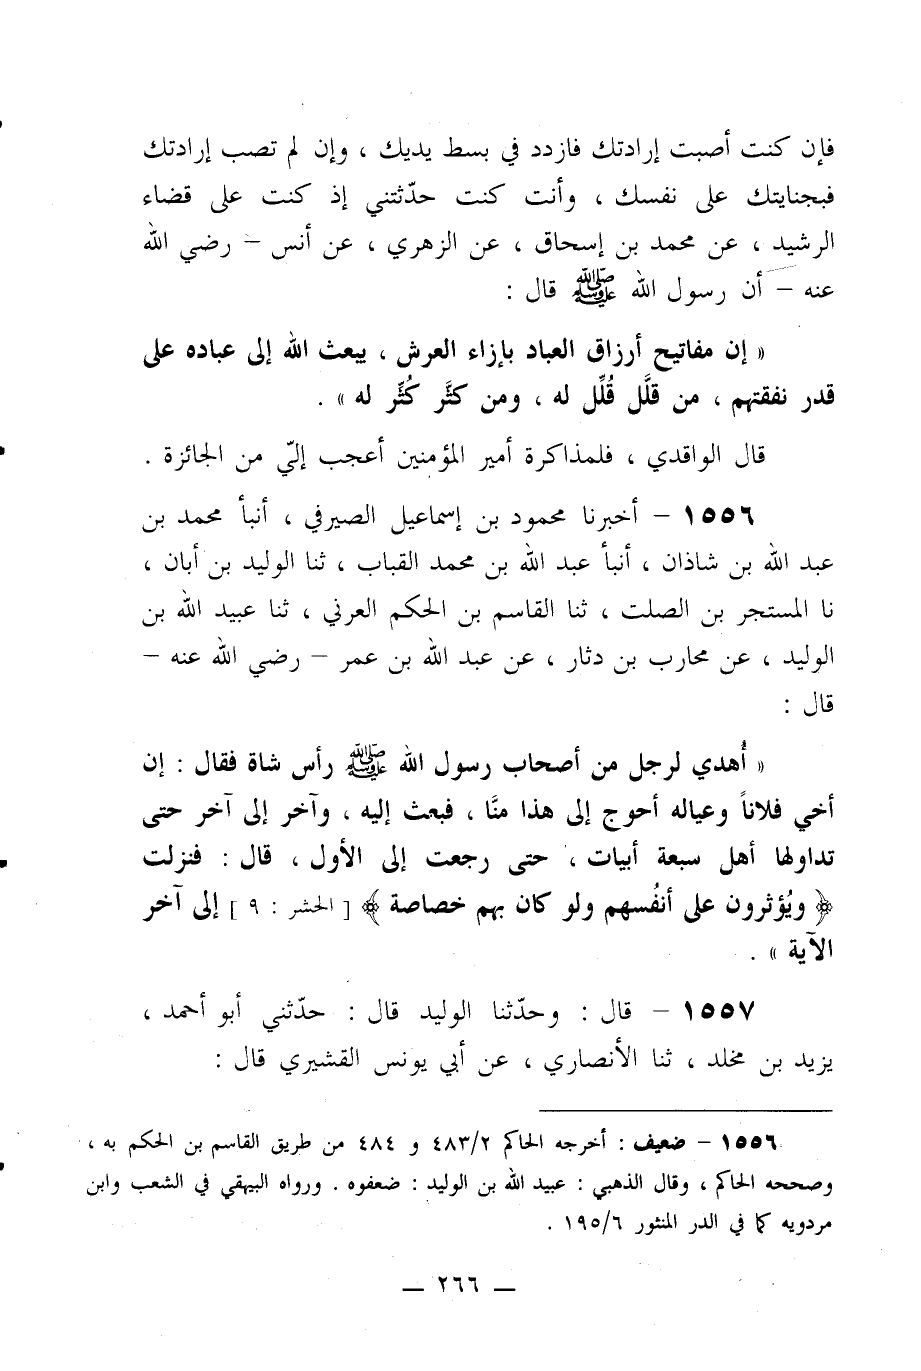 فإن كنت أصبت إرادتك فازدد في بسط يديك ، وإن لم تصب إرادتك
فبجنايتك على نفسك ، وأنت كنت حدّثتني إذ كنت على قضاء
الرشيد ، عن محمد بن إسحاق ، عن الزهري ، عن أنس – رضي الله
عنه – أن رسول الله ﷺ قال :
« إن مفاتيح أرزاق العباد بإزاء العرش ، يبعث الله إلى عباده على
قدر نفقتهم ، من قلَّل قُلِّل له ، ومن كثَّر كُثِّر له » .
قال الواقدي ، فلمذاكرة أمير المؤمنين أعجب إليّ من الجائزة .
١٥٥٦ – أخبرنا محمود بن إسماعيل الصيرفي ، أنبأ محمد بن
عبد الله بن شاذان ، أنبأ عبد الله بن محمد القباب ، ثنا الوليد بن أبان ،
نا المستجر بن الصلت ، ثنا القاسم بن الحكم العرني ، ثنا عبيد الله بن
الوليد ، عن محارب بن دثار ، عن عبد الله بن عمر – رضي الله عنه –
قال :
« أُهدي لرجل من أصحاب رسول الله ﷺ رأس شاة فقال : إن
أخي فلاناً وعياله أحوج إلى هذا منَّا ، فبعث إليه ، وآخر إلى آخر حتى
تداولها أهل سبعة أبيات ، حتى رجعت إلى الأول ، قال : فنزلت
﴿ ويُؤثرون على أنفُسهم ولو كان بهم خصاصة ﴾ [ الحشر : ٩ ] إلى آخر
الآية » .
١٥٥٧ – قال : وحدّثنا الوليد قال : حدّثني أبو أحمد ،
يزيد بن مخلد ، ثنا الأنصاري ، عن أبي يونس القشيري قال :
١٥٥٦ – ضعيف : أخرجه الحاكم ٤٨٣/٢ و ٤٨٤ من طريق القاسم بن الحكم به ،
وصححه الحاكم ، وقال الذهبي : عبيد الله بن الوليد : ضعفوه . ورواه البيهقي في الشعب وابن
مردويه كما في الدر المنثور ١٩٥/٦ .
— ٢٦٦ —